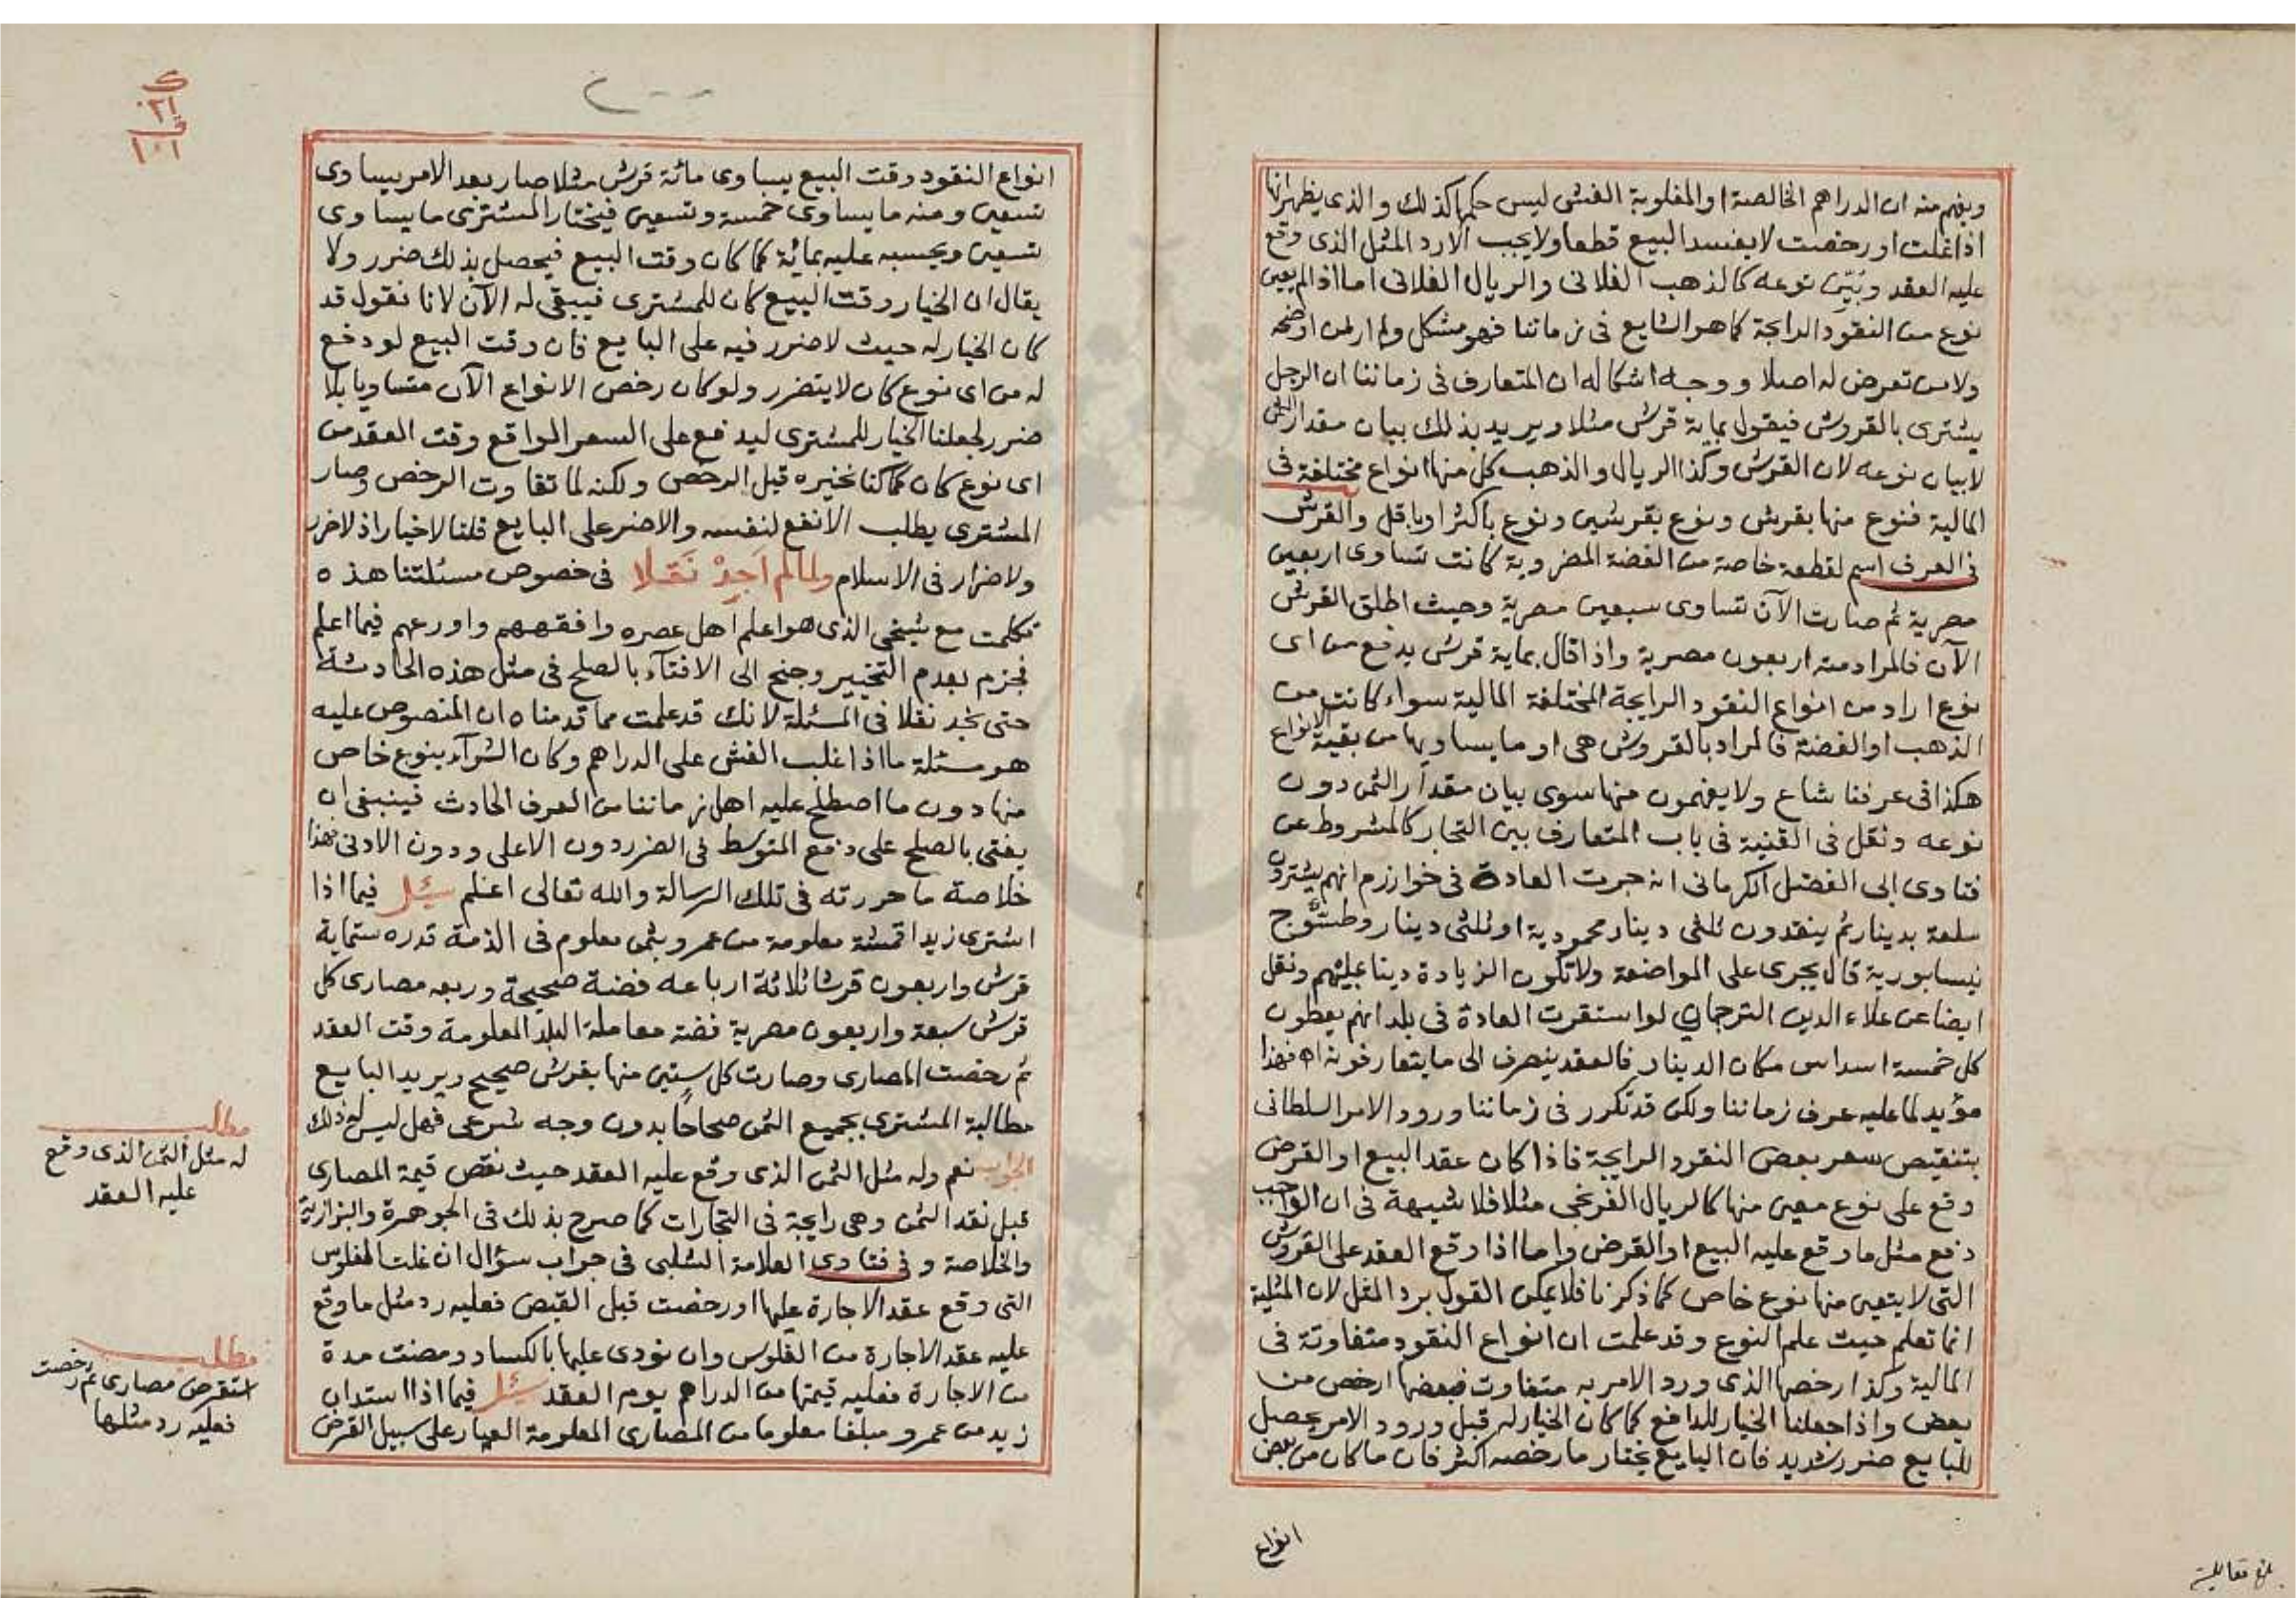 ويفهم منه ان الدراهم الخالصة او المغلوبة الغش ليس حكمها كذلك والذي يظهر انها
اذا غلت او رخصت لا يفسد البيع قطعا ولا يجب الا رد المثل الذي وقع
عليه العقد وبين نوعه كالذهب الفلاني والريال الفلاني اما اذا لم يعين
نوع من النقود الرايجة كما هو الشايع في زماننا فهو مشكل ولم ار من اوضحه
ولا من تعرض له اصلا ووجه اشكاله ان المتعارف في زماننا ان الرجل
يشتري بالقروش فيقول بماية قرش مثلا ويريد بذلك بيان مقدار الثمن
لا بيان نوعه لان القرش وكذا الريال والذهب كل منها انواع مختلفة في
المالية فنوع منها بقرش ونوع بقرشين ونوع باكثر او باقل والقرش
في العرف اسم لقطعة خاصة من الفضة المضروبة كانت تساوى اربعين
مصرية ثم صارت الآن تساوى سبعين مصرية وحيث اطلق القرش
الآن فالمراد منه اربعون مصرية واذا قال بماية قرش يدفع من اى
نوع اراد من انواع النقود الرايجة المختلفة المالية سواء كانت من
الذهب او الفضة فالمراد بالقروش هى او ما يساويها من بقية الانواع
هكذا في عرفنا شاع ولا يفهمون منها سوى بيان مقدار الثمن دون
نوعه ونقل في القنية في باب المتعارف بين التجار كالمشروط عن
فتاوى ابى الفضل الكرماني انه جرت العادة في خوارزم انهم يشترون
سلعة بدينار ثم ينقدون ثلثى دينار محمودية او ثلثى دينار وطسّوج
نيسابورية قال يجرى على المواضعة ولا تكون الزيادة دينا عليهم ونقل
ايضا عن علاء الدين الترجماني لو استقرت العادة في بلد انهم يعطون
كل خمسة اسداس مكان الدينار فالعقد ينصرف الى ما يتعارفونه اه فهذا
مؤيد لما عليه عرف زماننا ولكن قد تكرر في زماننا ورود الامر السلطانى
بتنقيص سعر بعض النقود الرايجة فاذا كان عقد البيع او القرض
وقع على نوع معين منها كالريال الفرنجى مثلا فلا شبهة في ان الواجب
دفع مثل ما وقع عليه البيع او القرض واما اذا وقع العقد على القروش
التى لا يتعين منها نوع خاص كما ذكرنا فلا يمكن القول برد المثل لان المثلية
انما تعلم حيث علم النوع وقد علمت ان انواع النقود متفاوتة في
المالية وكذا رخصها الذى ورد الامر به متفاوت فبعضها ارخص من
بعض واذا جعلنا الخيار للدافع كما كان الخيار له قبل ورود الامر يحصل
للبايع ضرر شديد فان البايع يختار ما رخصه اكثر فان ما كان من بعض
انواع
بلغ مقابلة
انواع النقود وقت البيع يساوى مائة قرش مثلا صار بعد الامر يساوى
تسعين ومنه ما يساوى خمسة وتسعين فيختار المشترى ما يساوى
تسعين ويحسبه عليه بمائة كما كان وقت البيع فيحصل بذلك ضرر ولا
يقال ان الخيار وقت البيع كان للمشترى فيبقى له الآن لانا نقول قد
كان الخيار له حيث لا ضرر فيه على البايع فان وقت البيع لو دفع
له من اى نوع كان لا يتضرر ولو كان رخص الانواع الآن متساويا بلا
ضرر لجعلنا الخيار للمشترى ليدفع على السعر الواقع وقت العقد من
اى نوع كان كما كنا نخيره قبل الرخص ولكنه لما تفاوت الرخص وصار
المشترى يطلب الانفع لنفسه والاضر على البايع قلنا لا خيار اذ لا ضرر
ولا ضرار في الاسلام ولما لم اجد نقلا في خصوص مسئلتنا هذه
تكلمت مع شيخى الذى هو اعلم اهل عصره وافقههم واورعهم فيما اعلم
فجزم بعدم التخيير وجنح الى الافتاء بالصلح في مثل هذه الحادثة
حتى نجد نقلا في المسئلة لانك قد علمت مما قدمناه ان المنصوص عليه
هو مسئلة ما اذا غلب الغش على الدراهم وكان الشراء بنوع خاص
منها دون ما اصطلح عليه اهل زماننا من العرف الحادث فينبغى ان
يفتى بالصلح على دفع المتوسط في الضرر دون الاعلى ودون الادنى فهذا
خلاصة ما حررته في تلك الرسالة والله تعالى اعلم سئل فيما اذا
اشترى زيد اقمشة معلومة من عمرو بثمن معلوم في الذمة قدره ستماية
قرش واربعون قرشا ثلاثة ارباعه فضة صحيحة وربعه مصارى كل
قرش سبعة واربعون مصرية فضة معاملة البلد المعلومة وقت العقد
ثم رخصت المصارى وصارت كل ستين منها بقرش صحيح ويريد البايع
مطالبة المشترى بجميع الثمن صحاحا بدون وجه شرعى فهل ليس له ذلك
الجواب نعم وله مثل الثمن الذى وقع عليه العقد حيث نقص قيمة المصارى
قبل نقد الثمن وهى رايجة في التجارات كما صرح بذلك في الجوهرة والبزازية
والخلاصة وفى فتاوى العلامة الشلبى في جواب سؤال ان غلت الفلوس
التى وقع عقد الاجارة عليها او رخصت قبل القبض فعليه رد مثل ما وقع
عليه عقد الاجارة من الفلوس وان نودى عليها بالكساد ومضت مدة
من الاجارة فعليه قيمتها من الدراهم يوم العقد سئل فيما اذا استدان
زيد من عمرو مبلغا معلوما من المصارى المعلومة العيار على سبيل القرض
مطلب
له مثل الثمن الذى وقع
عليه العقد
مطلب
استقرض مصارى ثم رخصت
فعليه رد مثلها